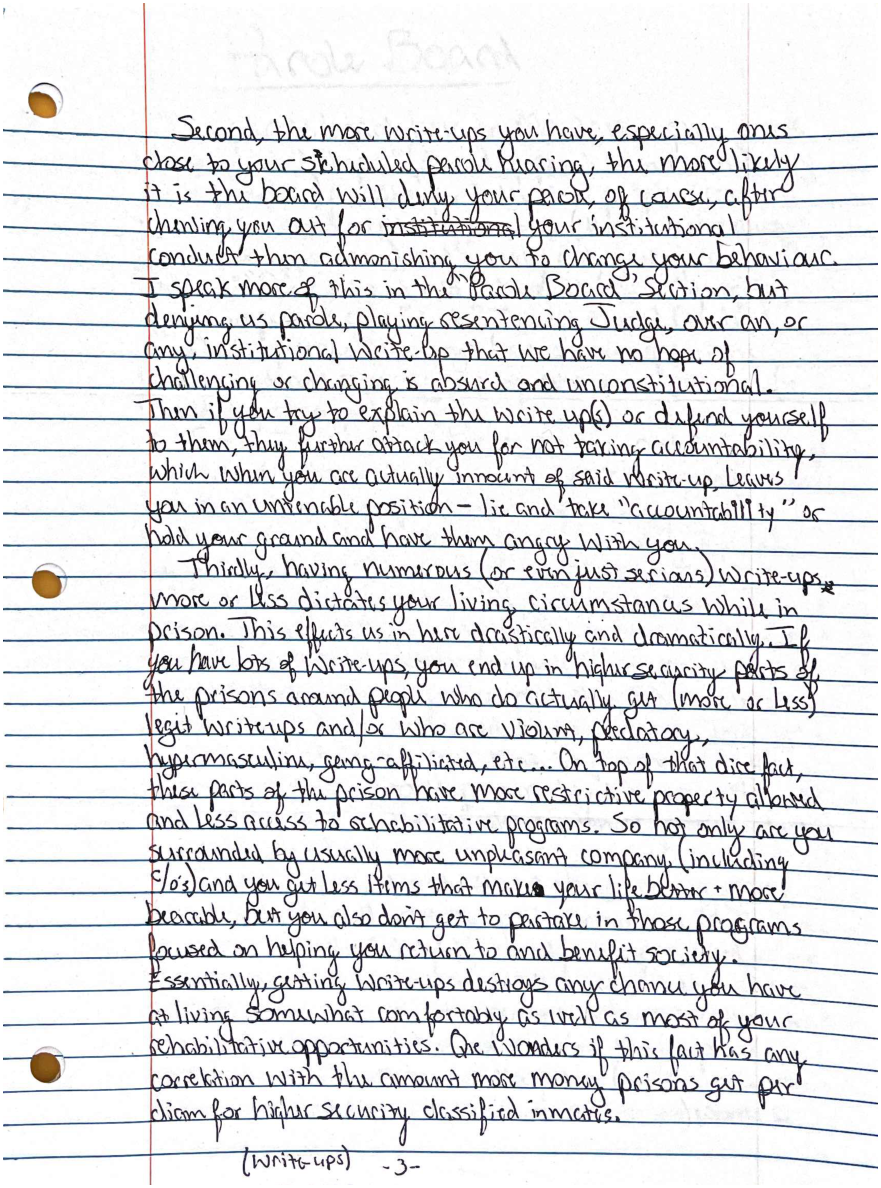 Parole Board
Second, the more write-ups you have, especially ones
close to your scheduled parole hearing, the more likely
it is the board will deny your parole, of course, after
chewing you out for institutional your institutional
conduct then admonishing you to change your behaviour.
I speak more of this in the "Parole Board" Section, but
denying us parole, playing resentencing Judge, over an, or
any, institutional Write-up that we have no hope of
challenging or changing is absurd and unconstitutional.
Then if you try to explain the write up(s) or defend yourself
to them, they further attack you for not taking accountability,
which when you are actually innocent of said write-up, leaves
you in an untenable position - lie and take "accountability" or
hold your ground and have them angry with you.
Thirdly, having numerous (or even just serious) write-ups
more or less dictates your living circumstances while in
prison. This effects us in here drastically and dramatically. If
you have lots of write-ups, you end up in higher security parts of
the prisons around people who do actually get (more or less)
legit write-ups and/or who are violent, predatory,
hypermasculine, gang-affiliated, etc... On top of that dire fact,
these parts of the prison have more restrictive property allowed
and less access to rehabilitative programs. So not only are you
surrounded by usually more unpleasant company (including
c/o's) and you get less items that make your life better + more
bearable, but you also don't get to partake in those programs
focused on helping you return to and benefit society.
Essentially, getting write-ups destroys any chance you have
at living somewhat comfortably as well as most of your
rehabilitative opportunities. One wonders if this fact has any
correlation with the amount more money prisons get per
diam for higher security classified inmates.
(Write-ups) -3-